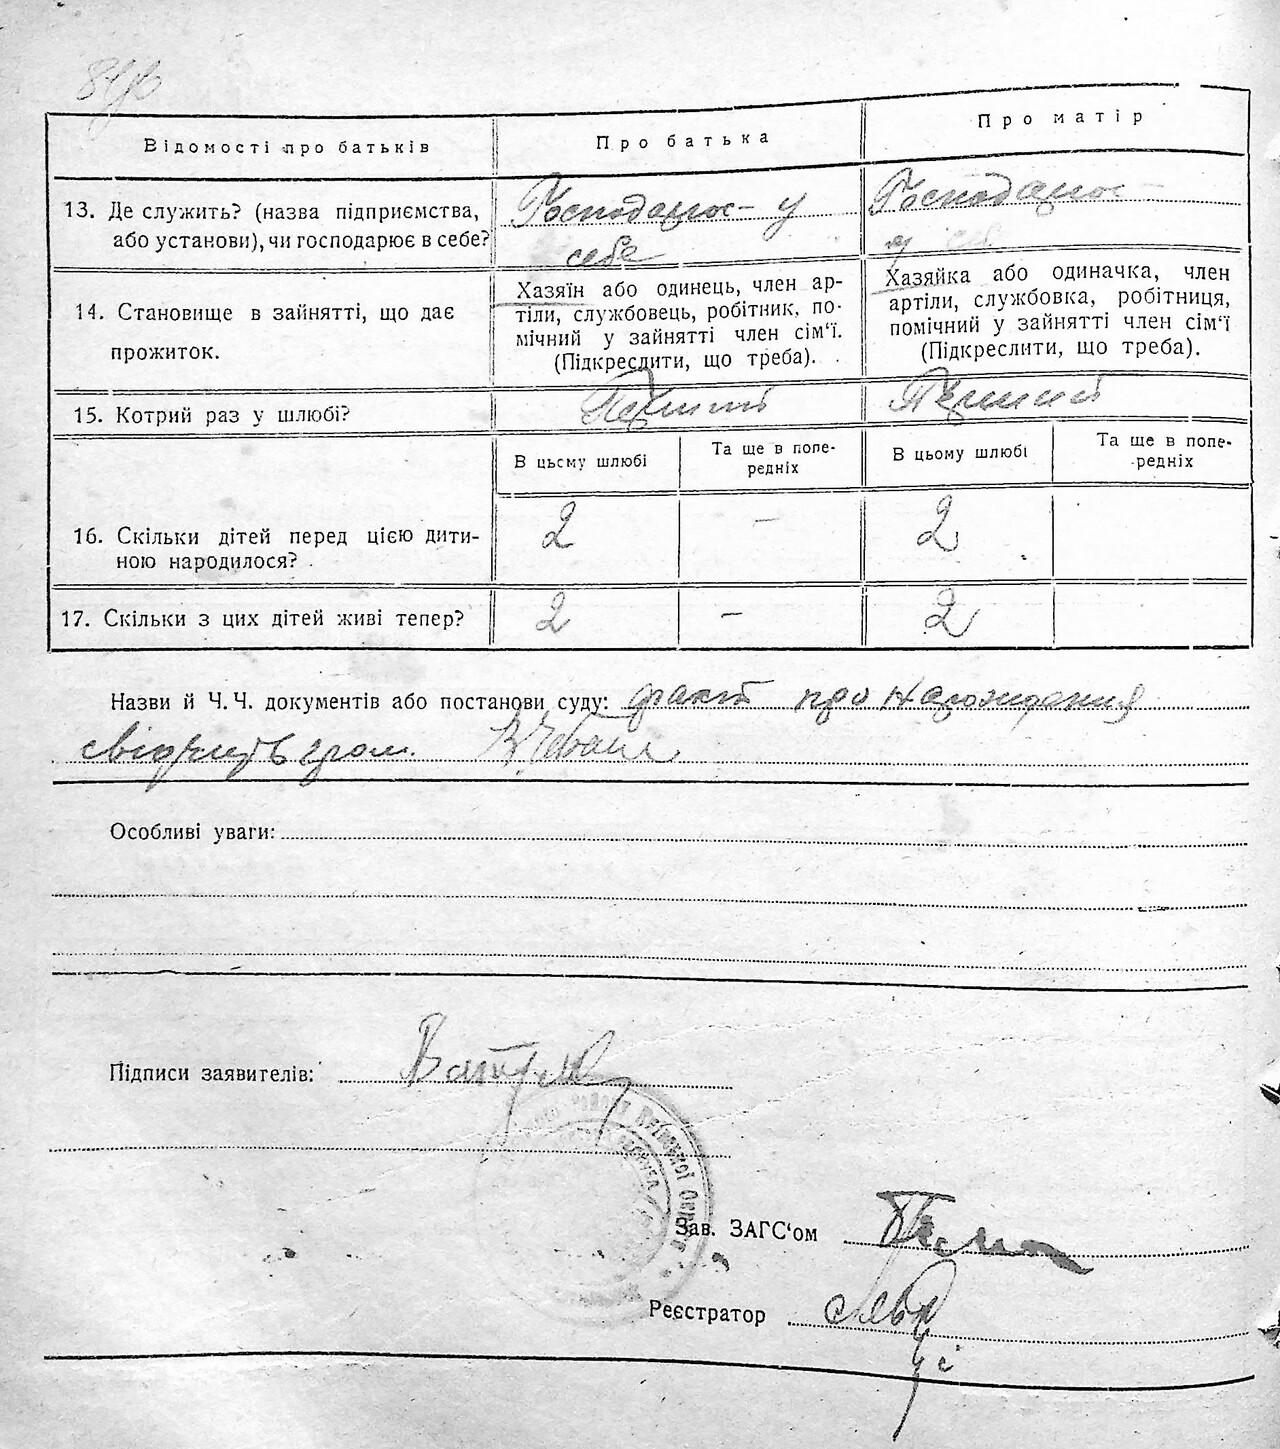 Відомості про батьків
Про батька
Про матір
13. Де служить? (назва підприємства,
або установи), чи господарює в себе?
Господарює у
себе
Господарює
у себе
14. Становище в зайнятті, що дає
прожиток.
Хазяїн або одинець, член ар-
тіли, службовець, робітник, по-
мічний у зайнятті член сім'ї.
(Підкреслити, що треба).
Хазяйка або одиначка, член
артіли, службовка, робітниця,
помічний у зайнятті член сім'ї
(Підкреслити, що треба).
15. Котрий раз у шлюбі?
Перший
Перший
В цьому шлюбі
Та ще в попе-
редніх
В цьому шлюбі
Та ще в попе-
редніх
16. Скільки дітей перед цією дити-
ною народилося?
2
–
2
17. Скільки з цих дітей живі тепер?
2
–
2
Назви й Ч. Ч. документів або постанови суду: факт про нарождения
свідчить гром.
Особливі уваги:
Підписи заявителів:
Зав. ЗАГС'ом
Реєстратор